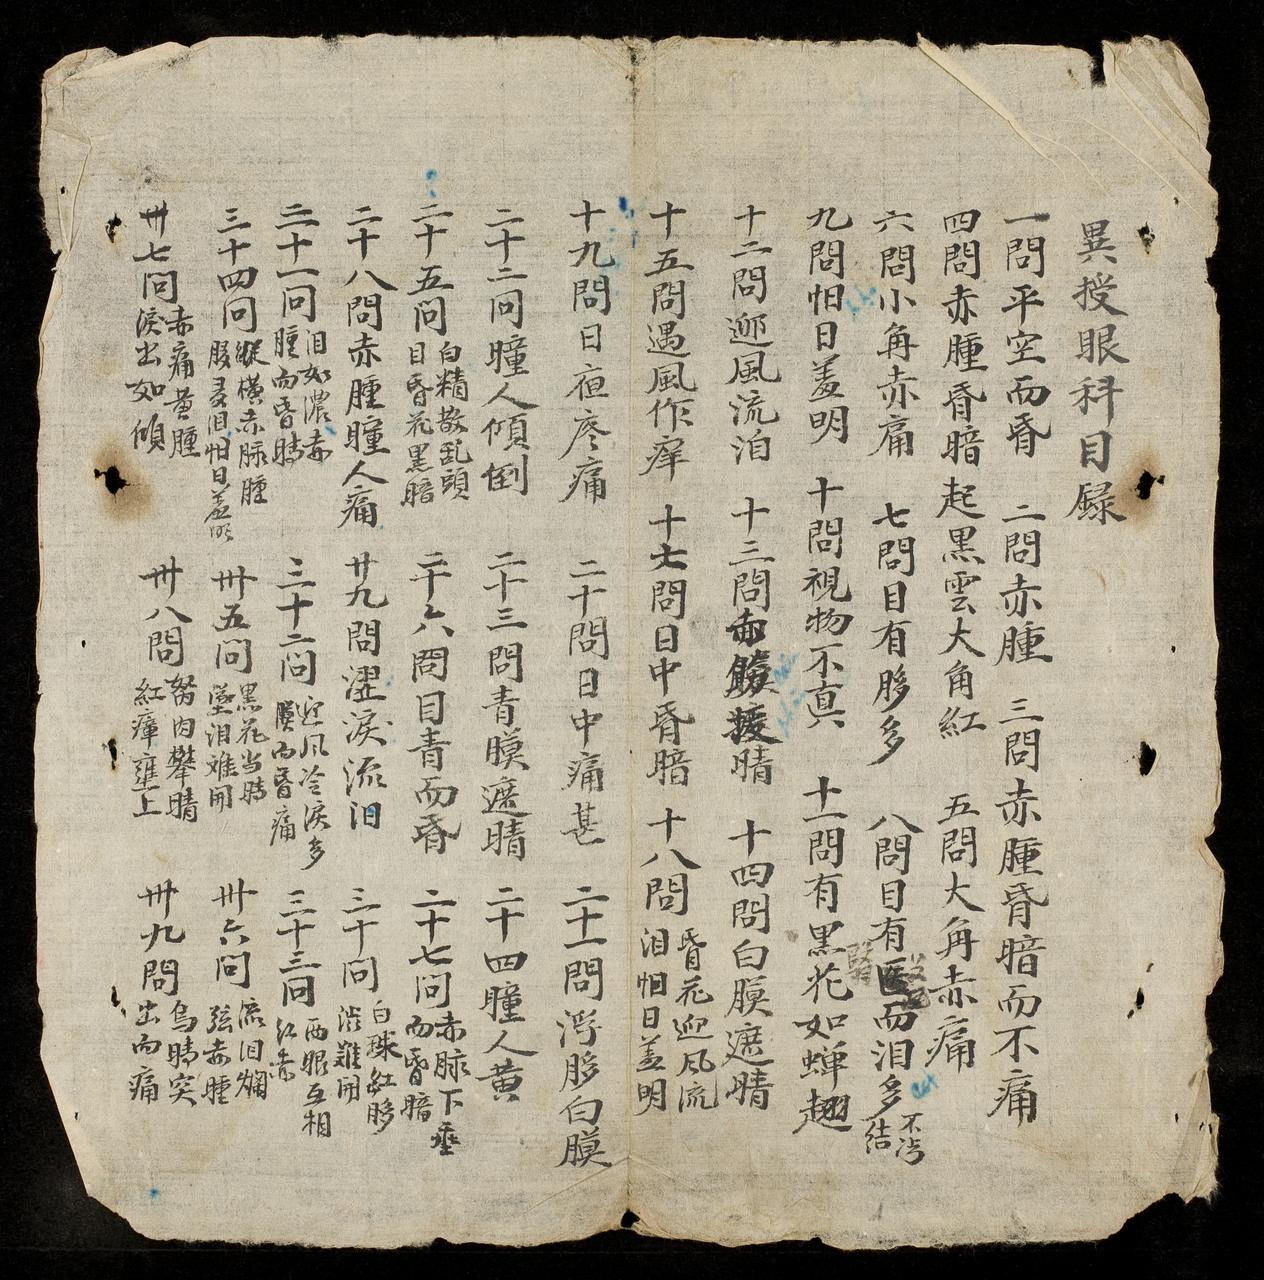 異授眼科目録
一問平空而昏 二問赤腫 三問赤腫昏暗而不痛
四問赤腫昏暗起黒雲大角紅 五問大角赤痛
六問小角赤痛 七問目有眵多 八問目有醫而泪多不清結
九問怕日羞明 十問視物不真 十一問有黒花如蟬翅
十二問迎風流泊 十三問赤膜遮睛 十四問白膜遮睛
十五問遇風作痒 十七問日中昏暗 十八問昏花迎风流泪怕日羞明
十九問日夜疼痛 二十問日中痛甚 二十一問浮眵白膜
二十二问瞳人傾倒 二十三問青膜遮睛 二十四瞳人黄
二十五问白精散乱頭目昏花黒暗 二十六問目青而昏 二十七问赤脉下垂而昏暗
二十八問赤腫瞳人痛 廿九問澀淚流泪 三十问白珠紅眵渋難開
三十一问泪如濃赤腫而昏睛 三十二问迎风冷淚多膜而昏痛 三十三问两眼互相红赤
三十四问縱横赤脉腫眵多泪怕日羞明 卅五问黒花当睛墜泪难開 卅六问流泪爛弦赤腫
卅七问赤痛黄腫淚出如傾 卅八問努肉攀睛紅瘴壅上 卅九問烏睛突出而痛